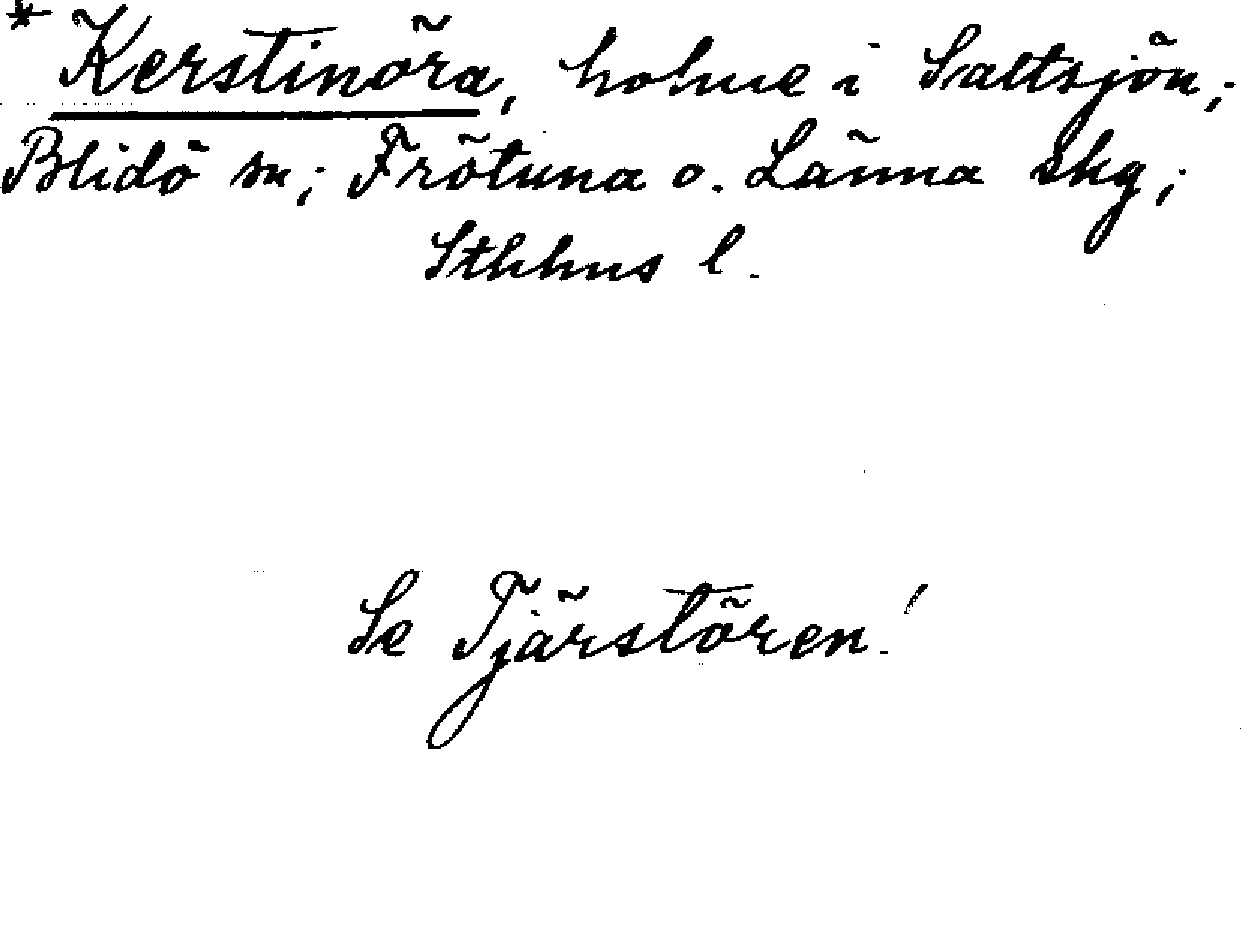 * Kerstinöra, holme i Saltsjön;
Blidö sn; Frötuna o. Länna skg;
Sthlms l.
Se Tjärstören!